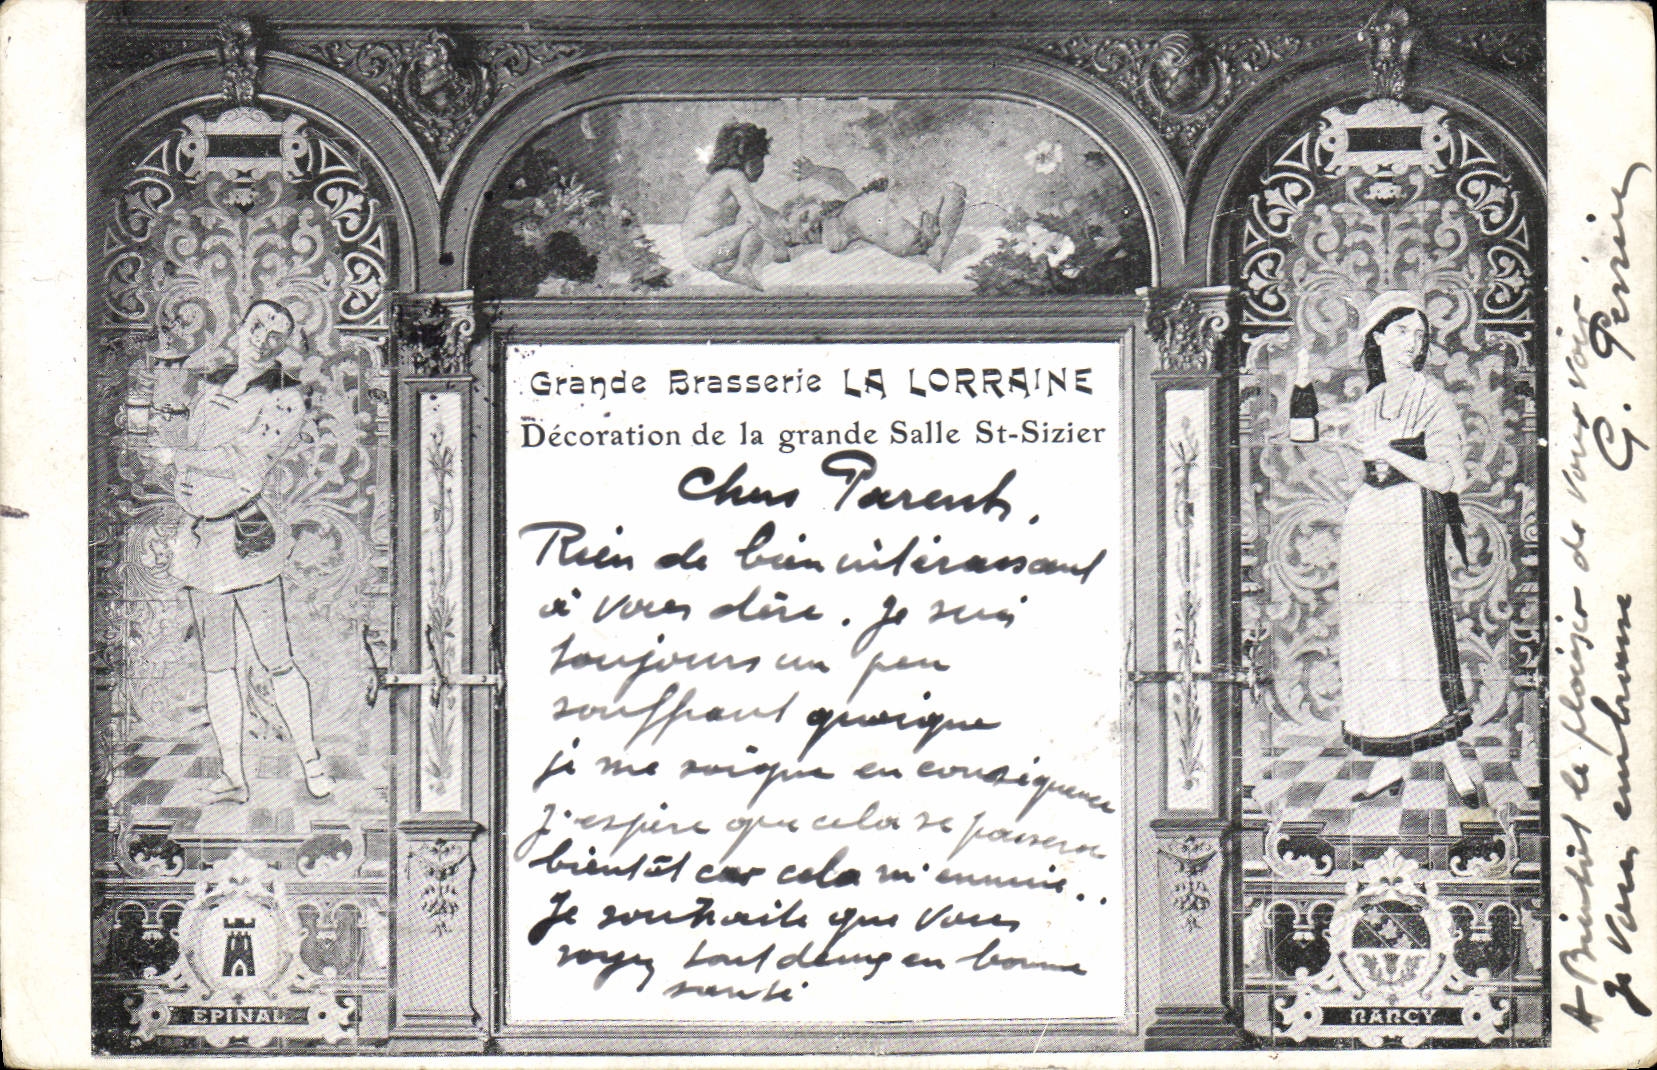 Grande Brasserie LA LORRAINE
Décoration de la grande Salle St-Sizier
Chers Parents,
Rien de bien intéressant
à vous dire. Je suis
toujours un peu
souffrant quoique
je me soigne en conséquence
J'espère que cela se passera
bientôt car cela m'ennuie..
Je souhaite que vous
soyez tout deux en bonne
santé
A Bientôt le plaisir de vous voir
Je vous embrasse G. Perrin
EPINAL
NANCY